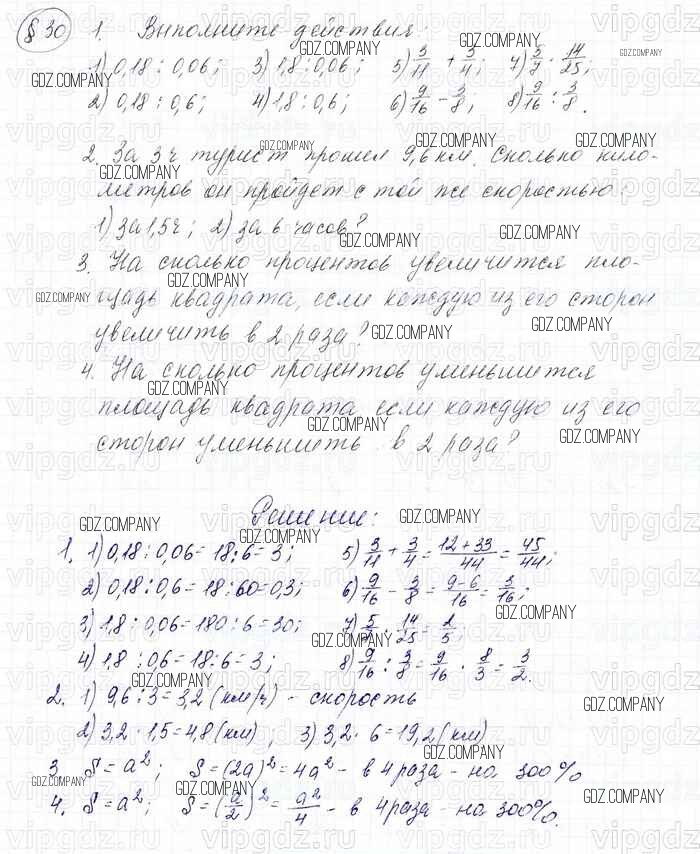 § 30 1. Выполните действия:
1) 0,18 : 0,06; 3) 1,8 : 0,06; 5) 3/11 + 3/4; 7) 5/7 · 14/25;
2) 0,18 : 0,6; 4) 1,8 : 0,6; 6) 9/16 - 3/8; 8) 9/16 : 3/8.
2. За 3ч турист прошел 9,6 км. Сколько кило-
метров он пройдет с той же скоростью:
1) за 1,5ч; 2) за 6 часов?
3. На сколько процентов увеличится пло-
щадь квадрата, если каждую из его сторон
увеличить в 2 раза?
4. На сколько процентов уменьшится
площадь квадрата если каждую из его
сторон уменьшить в 2 раза?
Решение:
1. 1) 0,18 : 0,06 = 18 : 6 = 3; 5) 3/11 + 3/4 = (12+33)/44 = 45/44;
2) 0,18 : 0,6 = 18 : 60 = 0,3; 6) 9/16 - 3/8 = (9-6)/16 = 3/16;
3) 1,8 : 0,06 = 180 : 6 = 30; 7) 5/7 · 14/25 = 2/5;
4) 1,8 : 06 = 18 : 6 = 3; 8) 9/16 : 3/8 = 9/16 · 8/3 = 3/2.
2. 1) 9,6 : 3 = 3,2 (км/ч) - скорость
2) 3,2 · 1,5 = 4,8 (км); 3) 3,2 · 6 = 19,2 (км)
3 S = a²; S = (2a)² = 4a² - в 4 раза - на 300%
4. S = a²; S = (a/2)² = a²/4 - в 4 раза - на 300%.
GDZ.COMPANY
vipgdz.ru